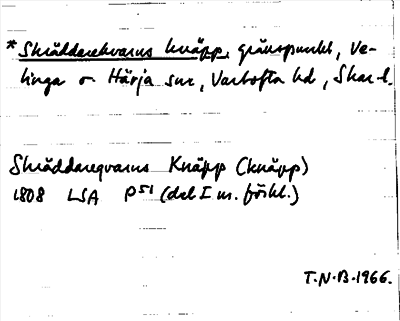 *Skräddarekvarns knäpp, gränspunkt, Ve-
linga o Härja snr, Vartofta hd, Skar. l.
Skräddareqvarns Knäpp (knäpp)
1808 LSA P51 (del I m. förkl.)
T.N.B. 1966.